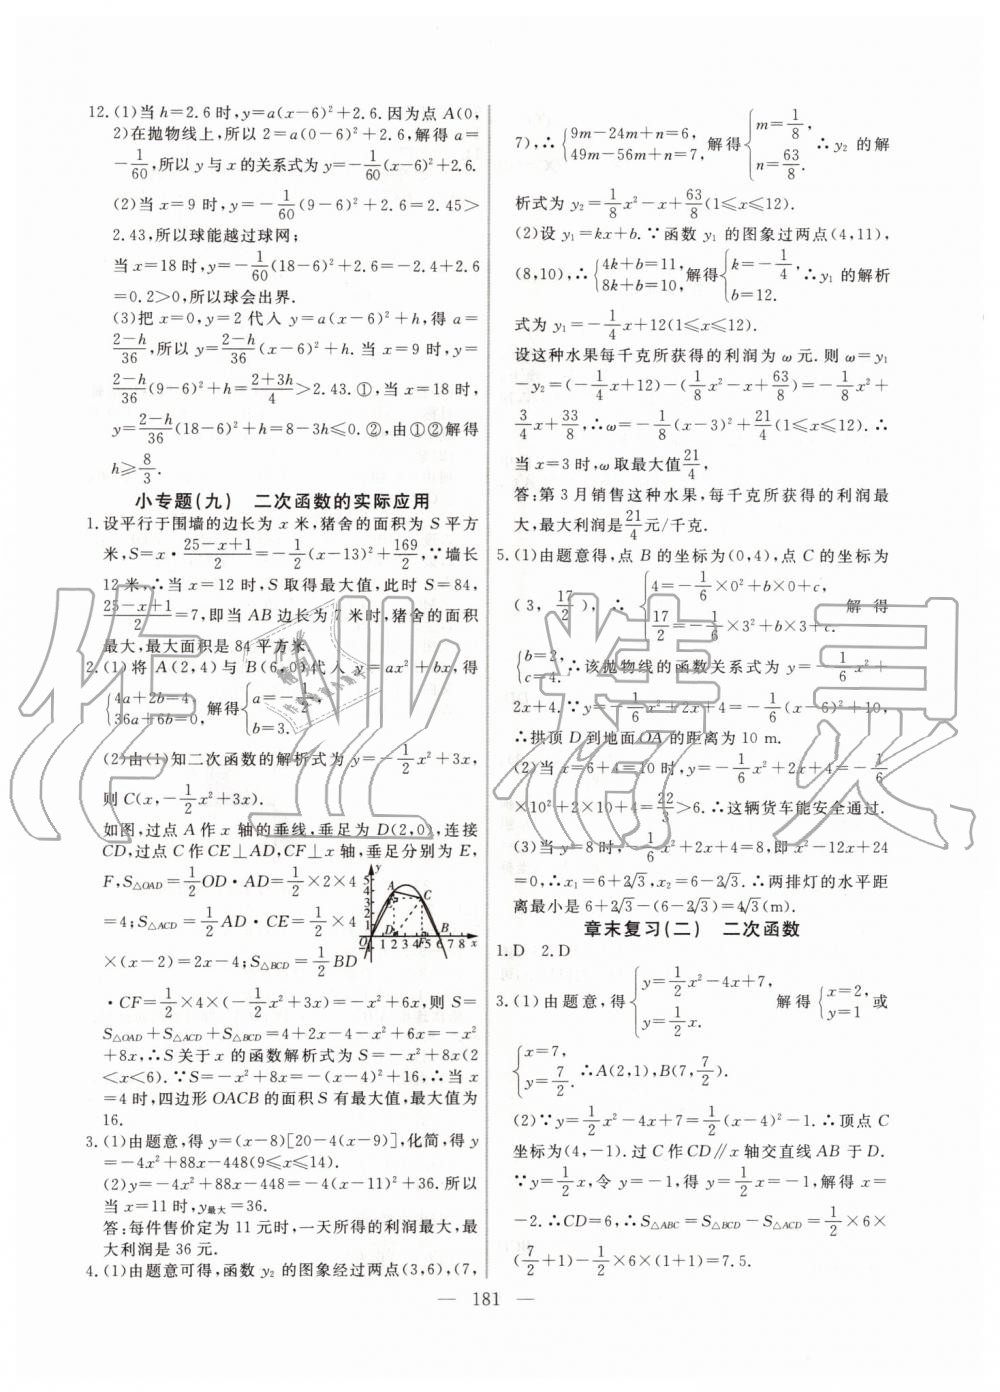 12.(1)当 h=2.6 时,y=a(x-6)²+2.6.因为点 A(0,
2)在抛物线上,所以 2=a(0-6)²+2.6,解得 a=
-1/60,所以 y 与 x 的关系式为 y=-1/60(x-6)²+2.6.
(2)当 x=9 时,y=-1/60(9-6)²+2.6=2.45>
2.43,所以球能越过球网;
当 x=18 时,y=-1/60(18-6)²+2.6=-2.4+2.6
=0.2>0,所以球会出界.
(3)把 x=0,y=2 代入 y=a(x-6)²+h,得 a=
(2-h)/36,所以 y=(2-h)/36(x-6)²+h.当 x=9 时,y=
(2-h)/36(9-6)²+h=(2+3h)/4>2.43.①,当 x=18 时,
y=(2-h)/36(18-6)²+h=8-3h≤0.②,由①②解得
h≥8/3.
小专题(九) 二次函数的实际应用
1.设平行于围墙的边长为 x 米,猪舍的面积为 S 平方
米,S=x·(25-x+1)/2=-1/2(x-13)²+169/2,∵墙长
12 米,∴当 x=12 时,S 取得最大值,此时 S=84,
(25-x+1)/2=7,即当 AB 边长为 7 米时,猪舍的面积
最大,最大面积是 84 平方米
2.(1)将 A(2,4)与 B(6,0)代入 y=ax²+bx,得
{4a+2b=4, 36a+6b=0, 解得{a=-1/2, b=3.
(2)由(1)知二次函数的解析式为 y=-1/2x²+3x,
则 C(x,-1/2x²+3x).
如图,过点 A 作 x 轴的垂线,垂足为 D(2,0),连接
CD,过点 C 作 CE⊥AD,CF⊥x 轴,垂足分别为 E,
F,S△OAD=1/2OD·AD=1/2×2×4
=4;S△ACD=1/2AD·CE=1/2×4
×(x-2)=2x-4;S△BCD=1/2BD
y 5 4 3 2 1 A E C D F B 1 2 3 4 5 6 7 8 x
·CF=1/2×4×(-1/2x²+3x)=-x²+6x,则 S=
S△OAD+S△ACD+S△BCD=4+2x-4-x²+6x=-x²
+8x,∴S 关于 x 的函数解析式为 S=-x²+8x(2
<x<6).∵S=-x²+8x=-(x-4)²+16,∴当 x
=4 时,四边形 OACB 的面积 S 有最大值,最大值为
16.
3.(1)由题意,得 y=(x-8)[20-4(x-9)],化简,得 y
=-4x²+88x-448(9≤x≤14).
(2)y=-4x²+88x-448=-4(x-11)²+36.所以
当 x=11 时,y最大=36.
答:每件售价定为 11 元时,一天所得的利润最大,最
大利润是 36 元.
4.(1)由题意可得,函数 y₂ 的图象经过两点(3,6),(7,
7),∴{9m-24m+n=6, 49m-56m+n=7, 解得{m=1/8, n=63/8. ∴y₂ 的解
析式为 y₂=1/8x²-x+63/8(1≤x≤12).
(2)设 y₁=kx+b.∵函数 y₁ 的图象过两点(4,11),
(8,10),∴{4k+b=11, 8k+b=10, 解得{k=-1/4, b=12. ∴y₁ 的解析
式为 y₁=-1/4x+12(1≤x≤12).
设这种水果每千克所获得的利润为 ω 元.则 ω=y₁
-y₂=(-1/4x+12)-(1/8x²-x+63/8)=-1/8x²+
3/4x+33/8,∴ω=-1/8(x-3)²+21/4(1≤x≤12).∴
当 x=3 时,ω 取最大值21/4,
答:第 3 月销售这种水果,每千克所获得的利润最
大,最大利润是21/4元/千克.
5.(1)由题意得,点 B 的坐标为(0,4),点 C 的坐标为
(3,17/2),∴{4=-1/6×0²+b×0+c, 17/2=-1/6×3²+b×3+c, 解得
{b=2, c=4. ∴该抛物线的函数关系式为 y=-1/6x²+
2x+4.∵y=-1/6x²+2x+4=-1/6(x-6)²+10,
∴拱顶 D 到地面 OA 的距离为 10 m.
(2)当 x=6+4=10 时,y=-1/6x²+2x+4=-1/6
×10²+2×10+4=22/3>6.∴这辆货车能安全通过.
(3)当 y=8 时,-1/6x²+2x+4=8,即 x²-12x+24
=0,∴x₁=6+2√3,x₂=6-2√3.∴两排灯的水平距
离最小是 6+2√3-(6-2√3)=4√3(m).
章末复习(二) 二次函数
1.D 2.D
3.(1)由题意,得{y=1/2x²-4x+7, y=1/2x. 解得{x=2, y=1 或
{x=7, y=7/2. ∴A(2,1),B(7,7/2).
(2)∵y=1/2x²-4x+7=1/2(x-4)²-1.∴顶点 C
坐标为(4,-1).过 C 作 CD∥x 轴交直线 AB 于 D.
∵y=1/2x,令 y=-1,得1/2x=-1,解得 x=
-2.∴CD=6,∴S△ABC=S△BCD-S△ACD=1/2×6×
(7/2+1)-1/2×6×(1+1)=7.5.
— 181 —
作业精灵